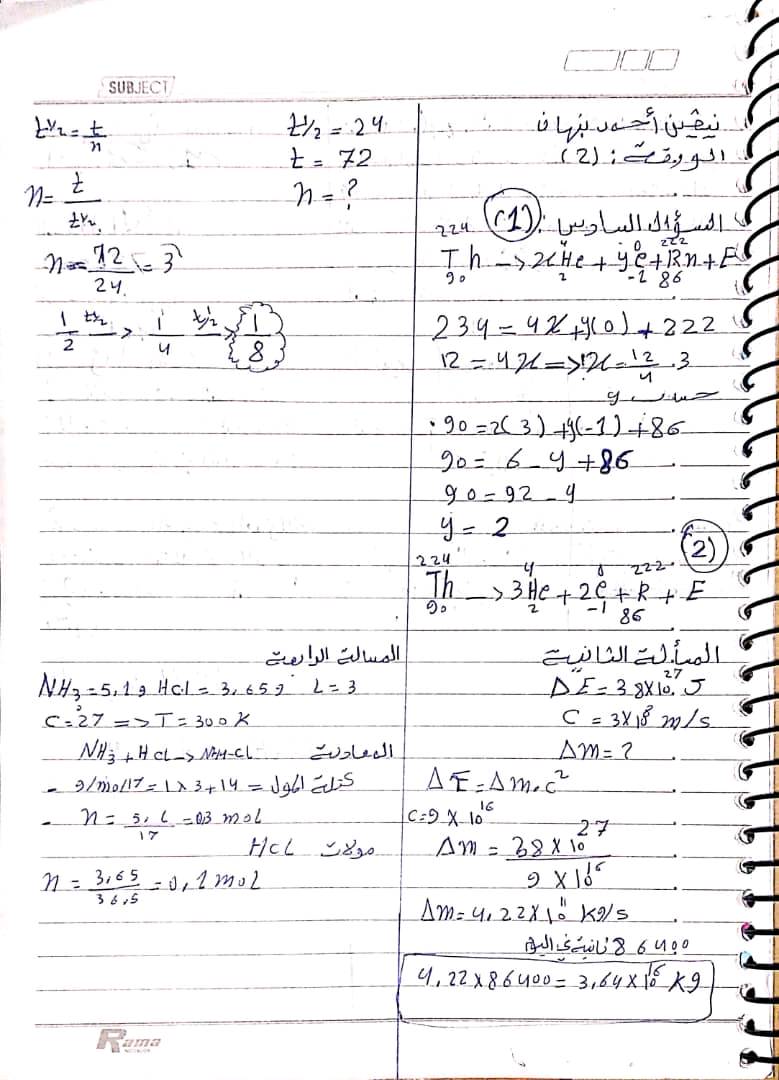 SUBJECT
نيڤين أحمد نبهان
الورقة: (2)
السؤال السادس: (1)
²²⁴₉₀Th -> x⁴₂He + y⁰₋₁e + ²²²₈₆Rn + E
234 = 4x + y(0) + 222
12 = 4x => x = 12/4 . 3
حساب y
90 = 2(3) + y(-1) + 86
90 = 6 - y + 86
90 = 92 - y
y = 2
(2)
²²⁴₉₀Th -> 3⁴₂He + 2⁰₋₁e + ²²²₈₆R + E
t½ = t/n
t½ = 24
t = 72
n = ?
n = t/t½
n = 72/24 = 3
1/2 t½-> 1/4 t½-> 1/8
المسألة الثانية
ΔE = 38×10²⁷ J
C = 3×10⁸ m/s
Δm = ?
ΔE = Δm.c²
C = 9 × 10¹⁶
Δm = 38×10²⁷ / 9×10¹⁶
Δm = 4,22×10¹¹ kg/s
86400 ثانية في اليوم
4,22×86400 = 3,64×10¹⁶ kg
المسالة الرابعة
NH₃ = 5,1g HCl = 3,65g L = 3
C = 27° => T = 300K
المعادلة NH₃ + HCl -> NH4Cl
كتلة المول = 14+3×1 = 17 g/mol
n = 5,1/17 = 03 mol
مولات HCl
n = 3,65/36,5 = 0,1 mol
Rama